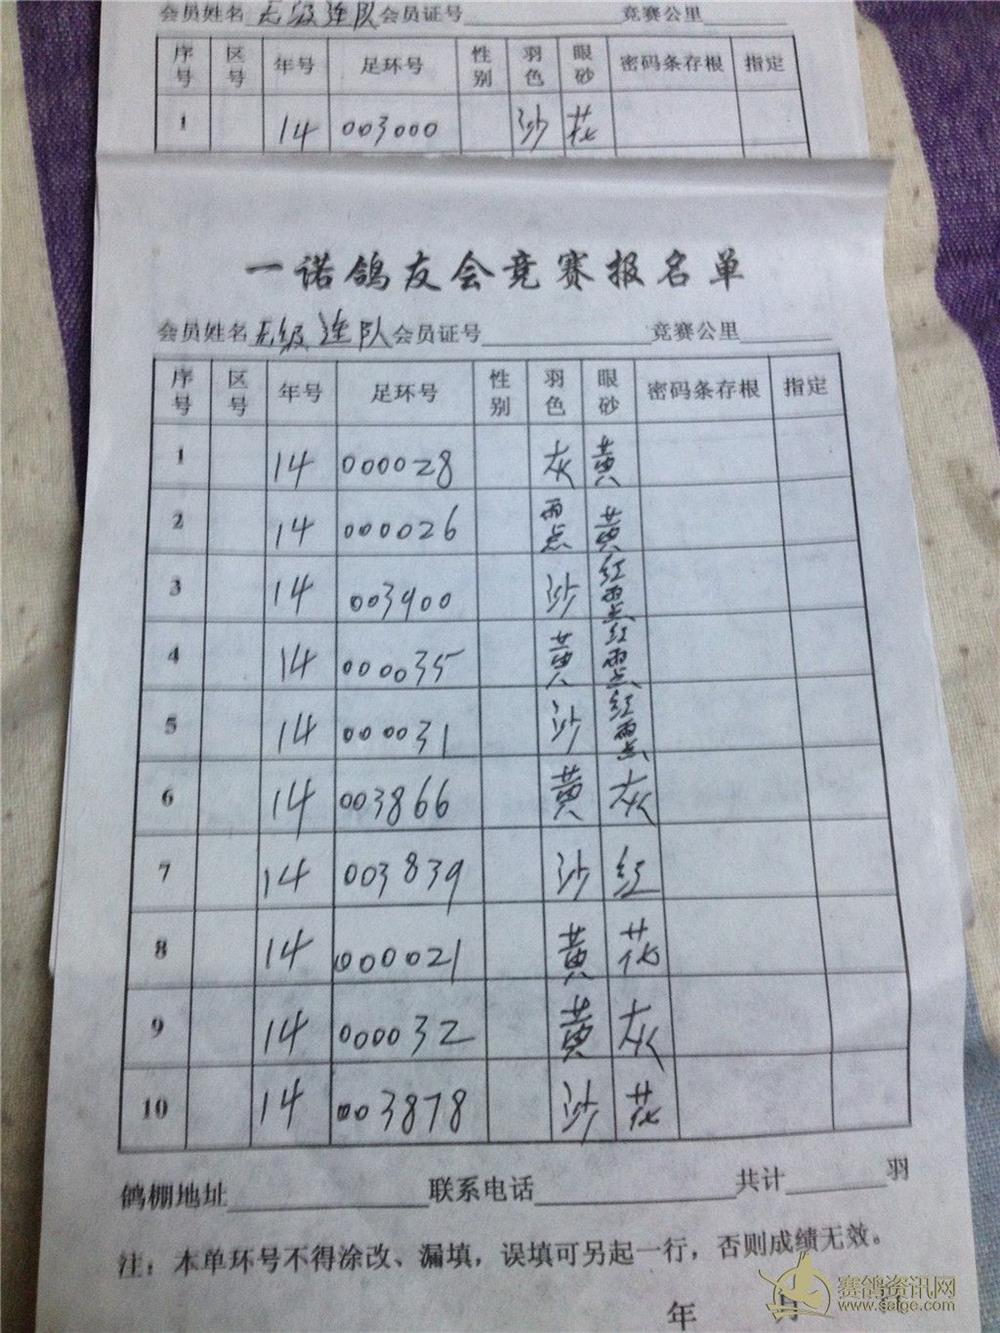 会员姓名无级连队会员证号 竞赛公里
序号 区号 年号 足环号 性别 羽色 眼砂 密码条存根 指定
1 14 003000 沙 花
一诺鸽友会竞赛报名单
会员姓名无级连队会员证号 竞赛公里
序号 区号 年号 足环号 性别 羽色 眼砂 密码条存根 指定
1 14 000028 灰 黄
2 14 000026 雨点 黄
3 14 003900 沙 红雨点
4 14 000035 黄 红雨点
5 14 000031 沙 红雨点
6 14 003866 黄 灰
7 14 003839 沙 红
8 14 000021 黄 花
9 14 000032 黄 灰
10 14 003878 沙 花
鸽棚地址 联系电话 共计 羽
注：本单环号不得涂改、漏填，误填可另起一行，否则成绩无效。
年 月 日
赛鸽资讯网
www.saige.com